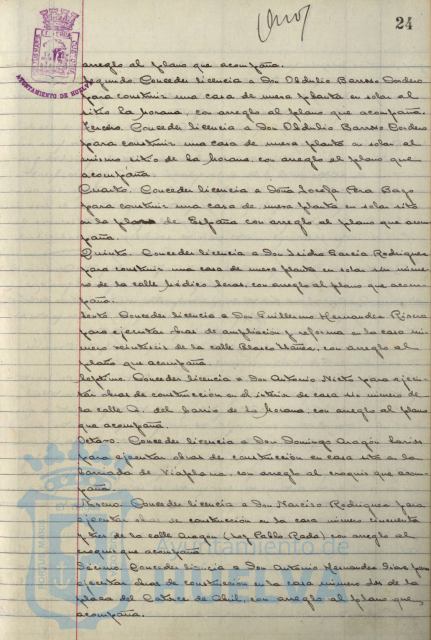 24
AYUNTAMIENTO DE HUELVA
arreglo al plano que acompaña.
Segundo. Conceder licencia a Don Obdulio Barroso Cordero
para construir una casa de nueva planta en solar al
sitio la Morana, con arreglo al plano que acompaña.
Tercero. Conceder licencia a Don Obdulio Barroso Cordero
para construir una casa de nueva planta en solar al
mismo sitio de la Morana, con arreglo al plano que
acompaña
Cuarto. Conceder licencia a Doña
para construir una casa de nueva planta en solar sito
en la plaza de España con arreglo al plano que acom
paña.
Quinto. Conceder licencia a Don Isidro García Rodríguez
para construir una casa de nueva planta en solar sin núme
ro de la calle con arreglo al plano que acom
paña.
Sexto. Conceder licencia a Don Guillermo Hernandez
para ejecutar obras de ampliación y reforma en la casa nú
mero veintiseis de la calle Blasco Ibáñez, con arreglo al
plano que acompaña
Septimo. Conceder licencia a Don Antonio Nieto para ejecu
tar obras de construcción en el interior de casa sin numero de
la calle A. del barrio de la Morana, con arreglo al plano
que acompaña
Octavo. Conceder licencia a Don Domingo Aragón
para ejecutar obras de construcción en casa sita en la
barriada de Viaplana, con arreglo al croquis que acom
paña
Noveno. Conceder licencia a Don Narciso Rodriguez para
ejecutar obras de construcción en la casa número cincuenta
y tres de la calle Aragón (hoy Pablo Rada) con arreglo al
croquis que acompaña
Décimo. Conceder licencia a Don Antonio Hernandez Diaz para
ejecutar obras de construcción en la casa número dos de la
plaza del Catorce de Abril, con arreglo al plano que
acompaña.
Ayuntamiento de
HUELVA